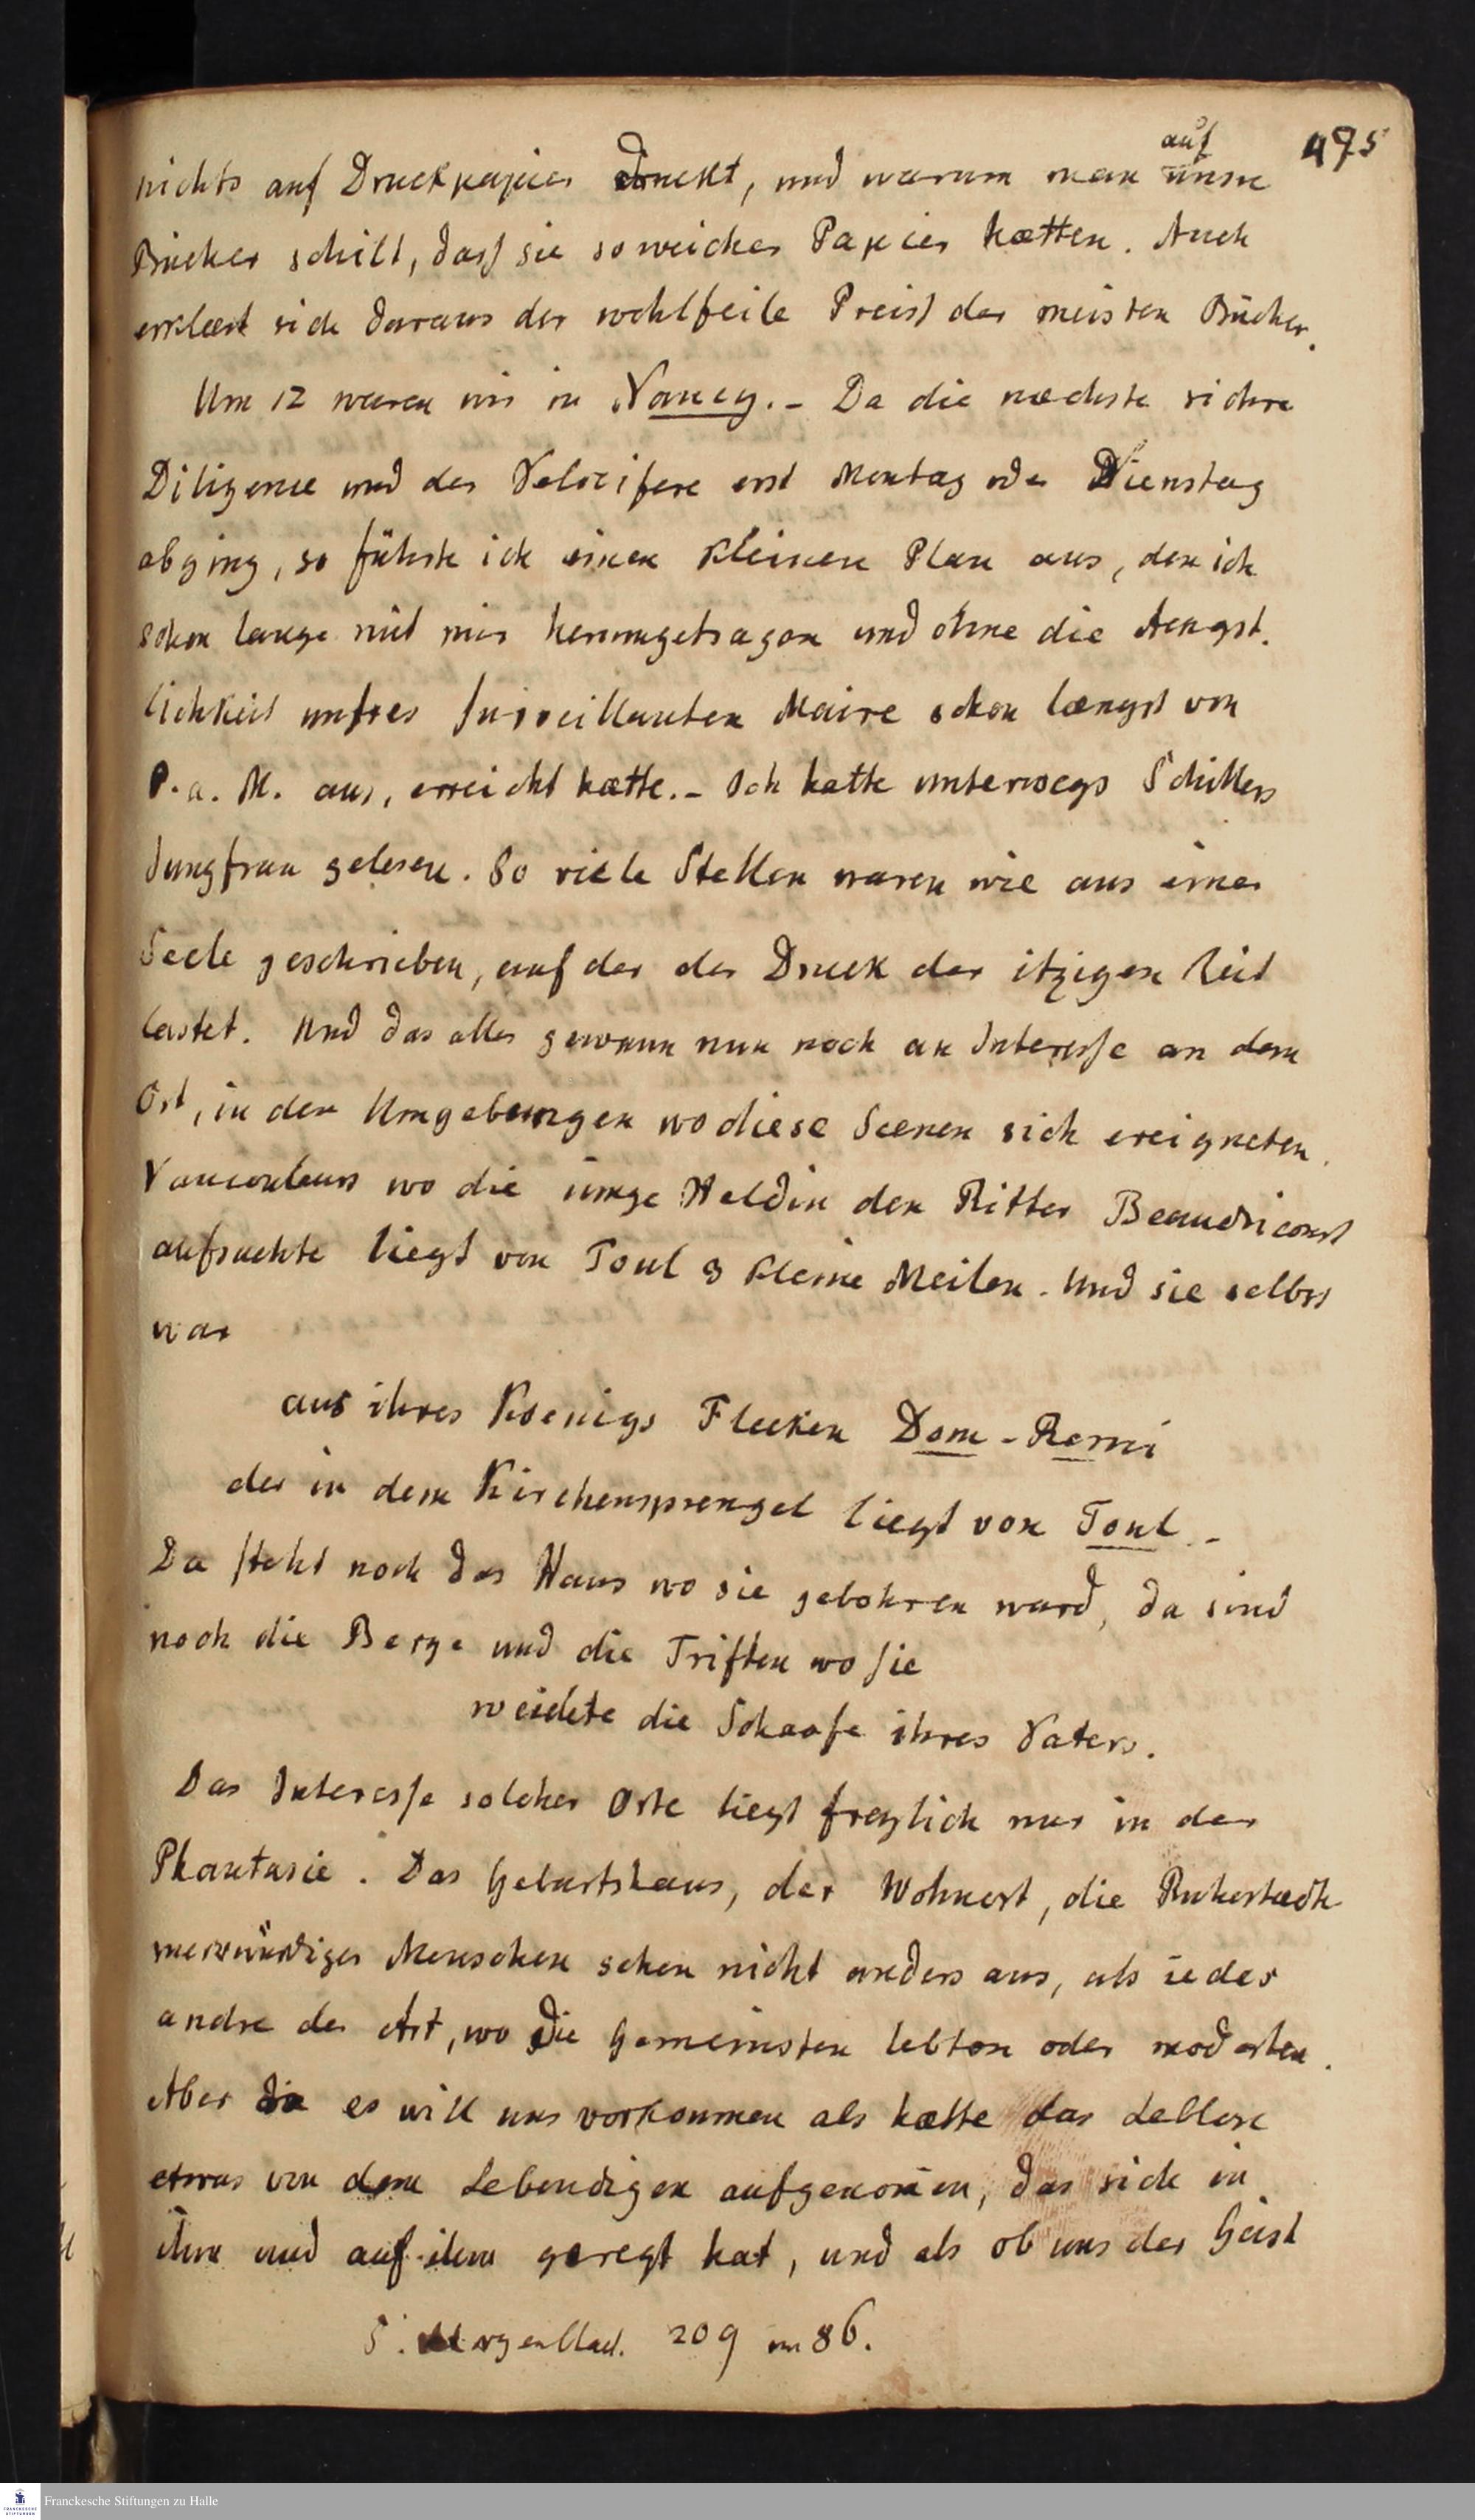 auf 495
nichts auf Druckpapier druckt, und warum man unsre
Bücher schilt, dass sie so weiches Papier hætten. Auch
erklært sich daraus der wohlfeile Preiss der meisten Bücher.
Um 12 waren wir in Nancy. - Da die næchste sichre
Diligence und der Velocifere erst Montag oder Dienstag
abging, so führte ich einen kleinen Plan aus, den ich
schon lange mit mir herumgetragen und ohne die Aengst-
lichkeit unsres surveillanten Maire schon længst von
P. a. M. aus, erreicht hætte. - Ich hatte unterwegs Schillers
Jungfrau gelesen. So viele Stellen waren wie aus einer
Seele geschrieben, auf der der Druck der itzigen Zeit
lastet. Und das alles gewann nun noch an Interesse an dem
Ort, in den Umgebungen wo diese Scenen sich ereigneten.
Vaucouleurs wo die iunge Heldin den Ritter Beaudricourt
aufsuchte liegt von Toul 3 kleine Meilen. Und sie selbst
war
aus ihres Koenigs Flecken Dom-Remi
der in dem Kirchensprengel liegt von Toul -
Da steht noch das Haus wo sie gebohren ward, da sind
noch die Berge und die Triften wo sie
weidete die Schaafe ihres Vaters.
Das Interesse solcher Orte liegt freylich nur in der
Phantasie. Das Geburtshaus, der Wohnort, die Ruhestædte
merkwürdiger Menschen sehen nicht anders aus, als ieder
andre der Art, wo die Gemeinsten lebten oder moderten.
Aber es will uns vorkommen als hætte das Leblose
etwas von dem Lebendigen aufgenom̄en, das sich in
ihm und auf ihm geregt hat, und als ob uns der Geist
S. Morgenblad. 209 86.